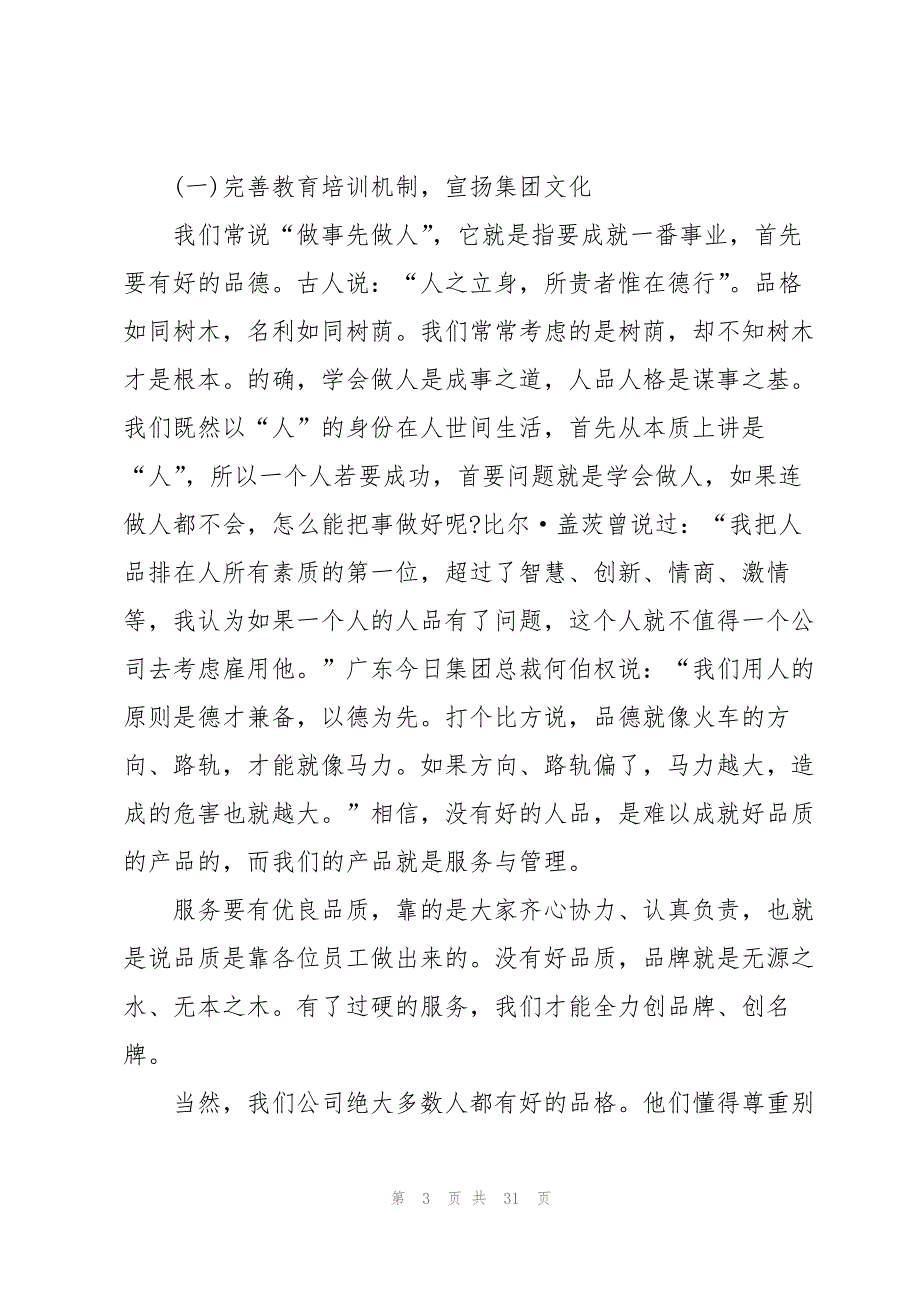 (一)完善教育培训机制，宣扬集团文化
我们常说“做事先做人”，它就是指要成就一番事业，首先
要有好的品德。古人说：“人之立身，所贵者惟在德行”。品格
如同树木，名利如同树荫。我们常常考虑的是树荫，却不知树木
才是根本。的确，学会做人是成事之道，人品人格是谋事之基。
我们既然以“人”的身份在人世间生活，首先从本质上讲是
“人”，所以一个人若要成功，首要问题就是学会做人，如果连
做人都不会，怎么能把事做好呢?比尔·盖茨曾说过：“我把人
品排在人所有素质的第一位，超过了智慧、创新、情商、激情
等，我认为如果一个人的人品有了问题，这个人就不值得一个公
司去考虑雇用他。”广东今日集团总裁何伯权说：“我们用人的
原则是德才兼备，以德为先。打个比方说，品德就像火车的方
向、路轨，才能就像马力。如果方向、路轨偏了，马力越大，造
成的危害也就越大。”相信，没有好的人品，是难以成就好品质
的产品的，而我们的产品就是服务与管理。
服务要有优良品质，靠的是大家齐心协力、认真负责，也就
是说品质是靠各位员工做出来的。没有好品质，品牌就是无源之
水、无本之木。有了过硬的服务，我们才能全力创品牌、创名
牌。
当然，我们公司绝大多数人都有好的品格。他们懂得尊重别
第 3 页 共 31 页